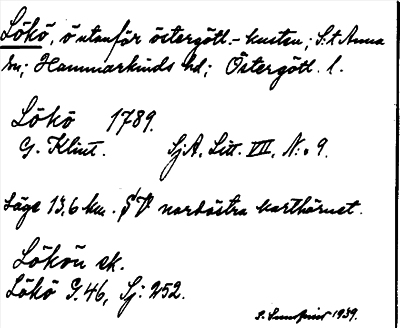 Lökö, ö utanför östergötl.-kusten; S:t Anna
sn; Hammarkinds hd; Östergötl. l.
Lökö 1789.
G. Klint. SjA. Litt. VII, N:o 9.
Läge 13,6 km. SV nordöstra karthörnet.
Lökön sk.
Lökö G. 46, Sj: 252.
1939.